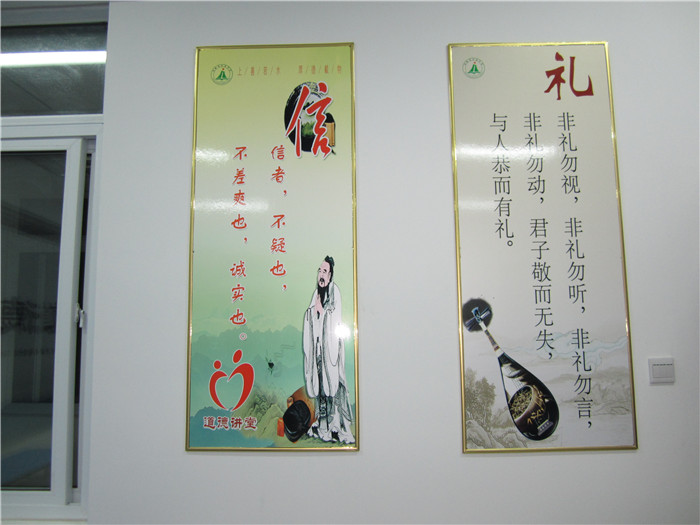 上/善/若/水 厚/德/载/物
信
信者，不疑也，
不差爽也，诚实也
道德讲堂
礼
非礼勿视，非礼勿听，非礼勿言，
非礼勿动，君子敬而无失，
与人恭而有礼。